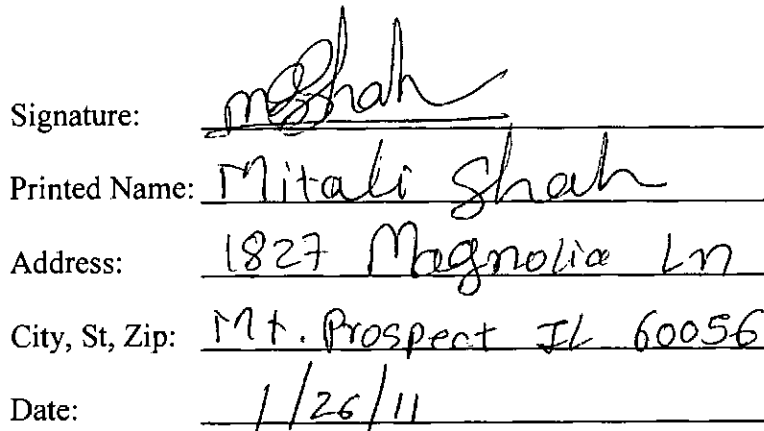 Signature: mshah
Printed Name: Mitali Shah
Address: 1827 Magnolia Ln
City, St, Zip: Mt. Prospect IL 60056
Date: 1/26/11